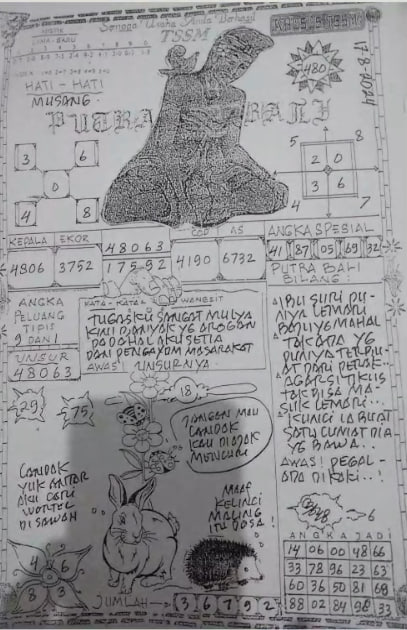 Semoga Usaha Anda Berhasil
TSSM
HATI - HATI
MUSANG.
480
17-8-2024
PUTRA BALI
3 6
0
4 8
5 8
2 0
3 6
4 7
KEPALA EKOR
4806 3752
48063
175-92
COP AS
4190 6732
ANGKA SPESIAL
41 87 05 69 32
PUTRA BALI
BILANG:
ANGKA
PELUANG
TIPIS
9 DAN 1
UNSUR
48063
KATA-KATA WANGSIT
TUGASKU SANGAT MULYA
KINI BANYAK YG AROGAN
PADAHAL AKU SETIA
DAN PENGAYOM MASARAKAT
AWAS! UNSURNYA.
IBU SURI PU-
NIYA LEMARI
BAJU YG MAHAL
TAK ADA YG
PUNIYA TERBU-
AT DARI PERAK..
AGAR SI TIKUS
TAK BISA MA-
SUK LEMARI..
KUNCI IA BUAT
SATU CUMAT DIA
YG BAWA..
AWAS! PEGAL-
ADA DI KAKI..!
29
75
18
JANGAN MAU
LANDAK
KAU DIAJAK
MENCURI
LANDAK
YUK ANTAR
AKU CARI
WORTEL
DI SAWAH
MAAF
KELINCI
MALING
ITU DOSA!
6
4 6
8 3
JUMLAH
3 6 7 9 2
ANGKA JADI
14 06 00 48 66
33 78 96 23 63
60 36 50 81 69
88 02 84 98 33